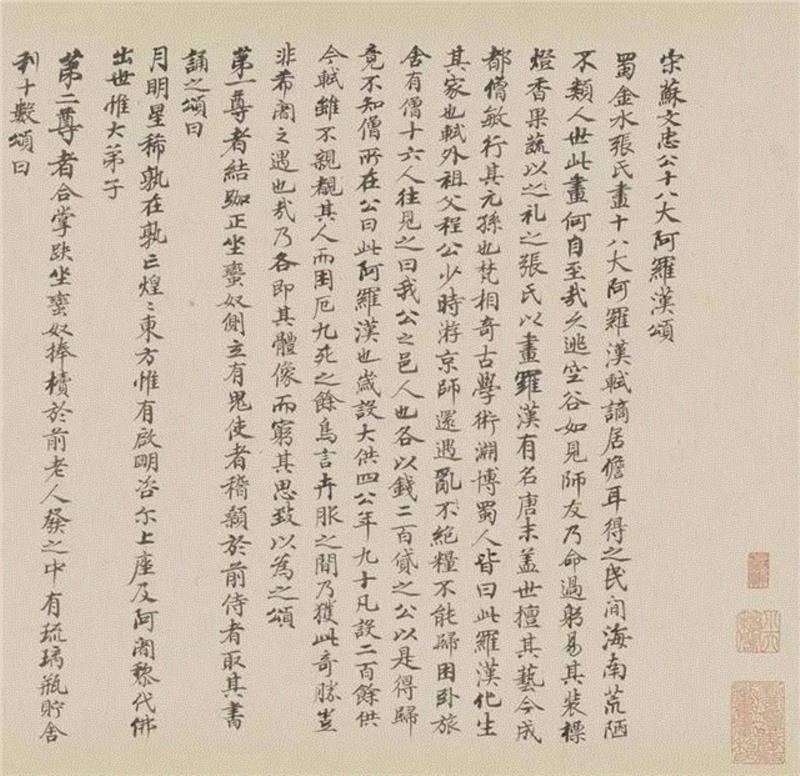 宋蘇文忠公十八大阿羅漢頌
蜀金水張氏畫十八大阿羅漢軾謫居儋耳得之民间海南荒陋
不類人世此畫何自至哉久逃空谷如見師友乃命過躬易其裝標
燈香果蔬以之礼之張氏以畫羅漢有名唐末盖世擅其藝今成
都僧敏行其元孫也梵相奇古學術淵博蜀人皆曰此羅漢化生
其家也軾外祖父程公少時游京師還遇亂不絕糧不能歸困卧旅
舍有僧十六人往見之曰我公之邑人也各以錢二百貸之公以是得歸
竟不知僧所在公曰此阿羅漢也歲設大供四公年九十凡設二百餘供
今軾雖不親覩其人而困厄九死之餘鳥言卉服之間乃獲此奇勝豈
非希闊之遇也哉乃各即其體像而窮其思致以為之頌
第一尊者結跏正坐蠻奴側立有鬼使者稽顙於前侍者取其書
誦之頌曰
月明星稀孰在孰亡煌〻東方惟有啟明咨尔上座及阿闍黎代佛
出世惟大弟子
第二尊者合掌趺坐蠻奴捧櫝於前老人發之中有琉璃瓶貯舍
利十數頌曰